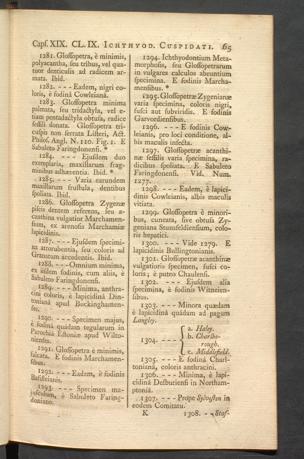 Capſ. XIX. CL. IX. ICHTHYOD. CUSPIDATI. 65
1281. Gloſſopetra, è minimis,
polyacantha, ſeu tribus, vel qua-
tuor denticulis ad radicem ar-
mata. Ibid.
1282. --- Eadem, nigri co-
loris, è fodinâ Cowleianâ.
1283. Gloſſopetra minima
palmata, ſeu tridactyla, vel e-
tiam pentadactyla obtuſa, radice
ſeſſili donata. Gloſſopetra tri-
cuſpis non ſerrata Liſteri, Act.
Philoſ. Angl. N. 110. Fig. 1. E
Sabuleto Faringdonenſi. *
1284. --- Ejuſdem duo
exemplaria, maxillarum frag-
minibus adhærentia. Ibid. *
1285. --- Varia earundem
maxillarum fruſtula, dentibus
ſpoliata. Ibid.
1286. Gloſſopetra Zygenæ
piſcis dentem referens, ſeu a-
canthina vulgatior Marchamen-
ſium, ex arenoſis Marchamiæ
lapicidinis.
1287. --- Ejuſdem ſpecimi-
na atrorubentia, ſeu coloris ad
Granatum accedentis. Ibid.
1288. --- Omnium minima,
ex iiſdem fodinis, cum aliis, è
Sabuleto Faringdonenſi.
1289. --- Minima, anthra-
cini coloris, è lapicidinâ Din-
tonianâ apud Buckinghamen-
ſes.
1290. --- Specimen majus,
è fodinâ quadam tegularum in
Parochiâ Eſtoniæ apud Wilto-
nienſes.
1291. Gloſſopetra è minimis,
falcata. E fodinis Marchamen-
ſibus.
1292. --- Eadem, è fodinis
Baſilteiniis.
1293. --- Specimen ma-
juſculum, è Sabuleto Faring-
doniano.
1294. Ichthyodontium Meta-
morphoſis, ſeu Gloſſopetrarum
in vulgares calculos abeuntium
ſpecimina. E fodinis Marcha-
menſibus.
1295. Gloſſopetræ Zygenianæ
varia ſpecimina, coloris nigri,
fuſci aut ſubviridis. E fodinis
Garvordienſibus.
1296. --- E fodinis Cow-
leianis, pro loci conditione, al-
bis maculis infecta.
1297. Gloſſopetræ acanthi-
næ ſeſſilis varia ſpecimina, ra-
dicibus ſpoliata. E Sabuleto
Faringdonenſi. Vid. Num.
1277.
1298. --- Eadem, è lapici-
dinis Cowleianis, albis maculis
vitiata.
1299. Gloſſopetra è minori-
bus, cuneata, ſive obtuſa Zy-
geniana Stunsfeldienſium, colo-
ris hepatici.
1300. --- Vide 1279. E
lapicidinis Bullingtonianis.
1301. Gloſſopetræ acanthinæ
vulgatioris ſpecimen, fuſci co-
loris; è puteo Chaulenſi.
1302. --- Ejuſdem alia
ſpecimina, è fodinis Witneien-
ſibus.
1303. --- Minora quædam
è lapicidinâ quâdam ad pagum
Langley.
1304. ---
a. Haley.
b. Charlbo-
rough.
c. Middlefield.
1305. --- E fodinâ Charl-
tonianâ, coloris anthracini.
1306. --- Minima, è lapi-
cidinâ Desburienſi in Northam-
ptoniâ.
1307. --- Prope Sylveſton in
eodem Comitatu.
K 1308. -- Stof-